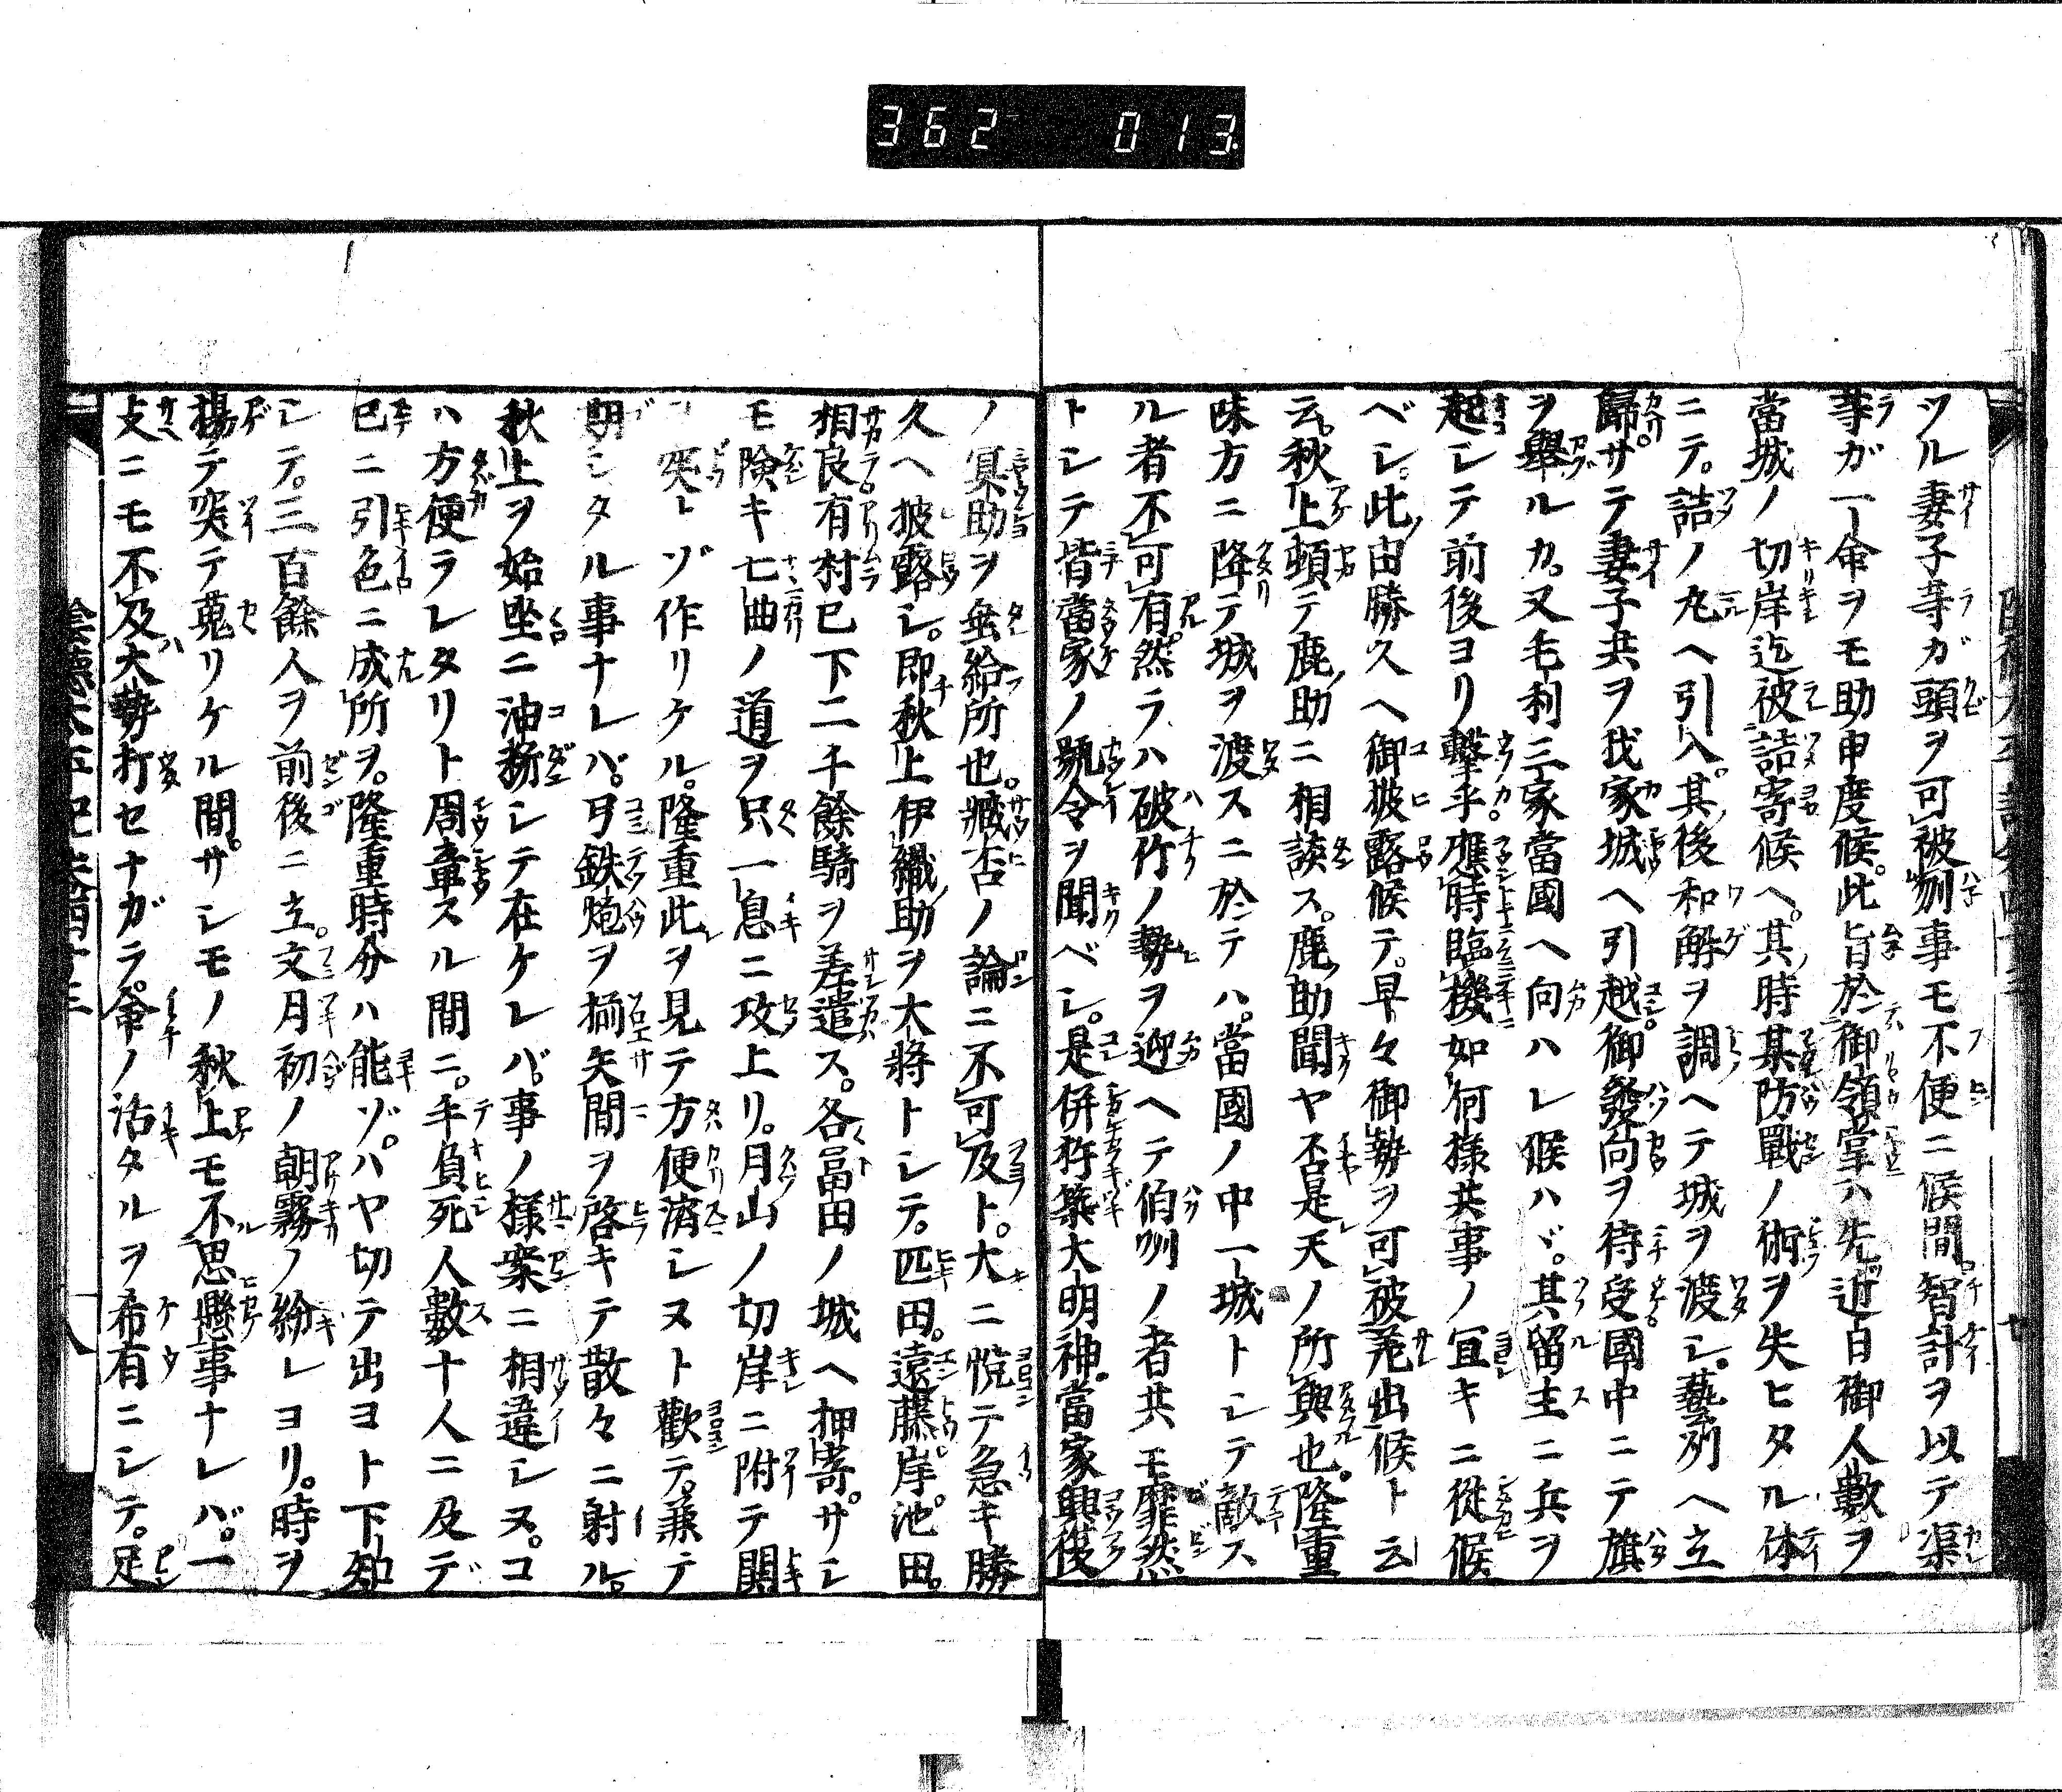 362 013
ツル妻子等ガ頭ヲ可被刎事モ不便ニ候間。智計ヲ以テ渠
等ガ一命ヲモ助申度候。此旨於御領掌ハ先近日御人數ヲ
當城ノ切岸迄被詰寄候ヘ。其時某防戰ノ術ヲ失ヒタル体
ニテ。詰ノ丸ヘ引入。其後和解ヲ調ヘテ城ヲ渡シ。藝列ヘ立
歸。サテ妻子共ヲ我家城ヘ引越。御發向ヲ待受國中ニテ旗
ヲ舉ルカ。又毛利三家當國ヘ向ハレ候ハヾ。其留主ニ兵ヲ
起シテ前後ヨリ擊乎。應時臨機如何樣共事ノ宜キニ從候
ベシ。此由勝久ヘ御披露候テ。早々御勢ヲ可被差出候ト云
云。秋上頓テ鹿助ニ相談ス。鹿助聞ヤ否是天ノ所與也。隆重
味方ニ降テ城ヲ渡スニ於テハ。當國ノ中一城トシテ敵ス
ル者不可有。然ラハ破竹ノ勢ヲ迎ヘテ伯州ノ者共モ靡然
トシテ皆當家ノ號令ヲ聞ベシ。是併杵築大明神。當家興復
ノ冥助ヲ垂給所也。臧否ノ論ニ不可及ト。大ニ悅テ急キ勝
久ヘ披露シ。即秋上伊織助ヲ大將トシテ。匹田。遠藤。岸。池田。
相良有村已下二千餘騎ヲ差遣ス。各冨田ノ城ヘ押寄。サシ
モ険キ七曲ノ道ヲ只一息ニ攻上リ。月山ノ切岸ニ附テ鬨
ヲ咄トゾ作リケル。隆重此ヲ見テ方便濟シヌト歡テ。兼テ
期シタル事ナレバ。弓鉄炮ヲ揃矢間ヲ啓キテ散々ニ射ル。
秋上ヲ始坐ニ油斷シテ在ケレバ。事ノ樣案ニ相違シヌ。コ
ハ方便ラレタリト周章スル間ニ。手負死人數十人ニ及デ
已ニ引色ニ成所ヲ。隆重時分ハ能ゾ。ハヤ切テ出ヨト下知
シテ。三百餘人ヲ前後ニ立。文月初ノ朝霧ノ紛レヨリ。時ヲ
揚テ突テ蒐リケル間。サシモノ秋上モ不思懸事ナレバ。一
支ニモ不及大勢打セナガラ。命ノ活タルヲ希有ニシテ。足
陰德太平記 卷第四十三
八